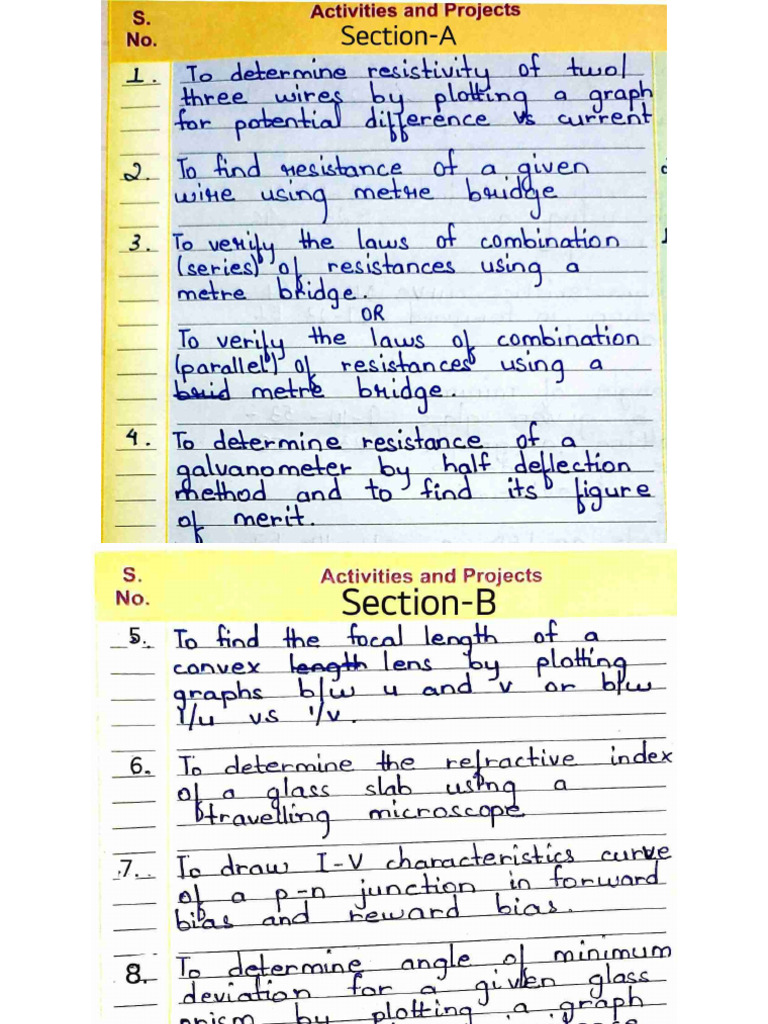 S. No. Activities and Projects
Section-A
1. To determine resistivity of two/
three wires by plotting a graph
for potential difference vs current
2. To find resistance of a given
wire using metre bridge
3. To verify the laws of combination
(series) of resistances using a
metre bridge.
OR
To verify the laws of combination
(parallel) of resistances using a
brid metre bridge.
4. To determine resistance of a
galvanometer by half deflection
method and to find its figure
of merit.
S. No. Activities and Projects
Section-B
5. To find the focal length of a
convex length lens by plotting
graphs b/w u and v or b/w
1/u vs 1/v.
6. To determine the refractive index
of a glass slab using a
travelling microscope
7. To draw I-V characteristics curve
of a p-n junction in forward
bias and reward bias.
8. To determine angle of minimum
deviation for a given glass
prism by plotting a graph